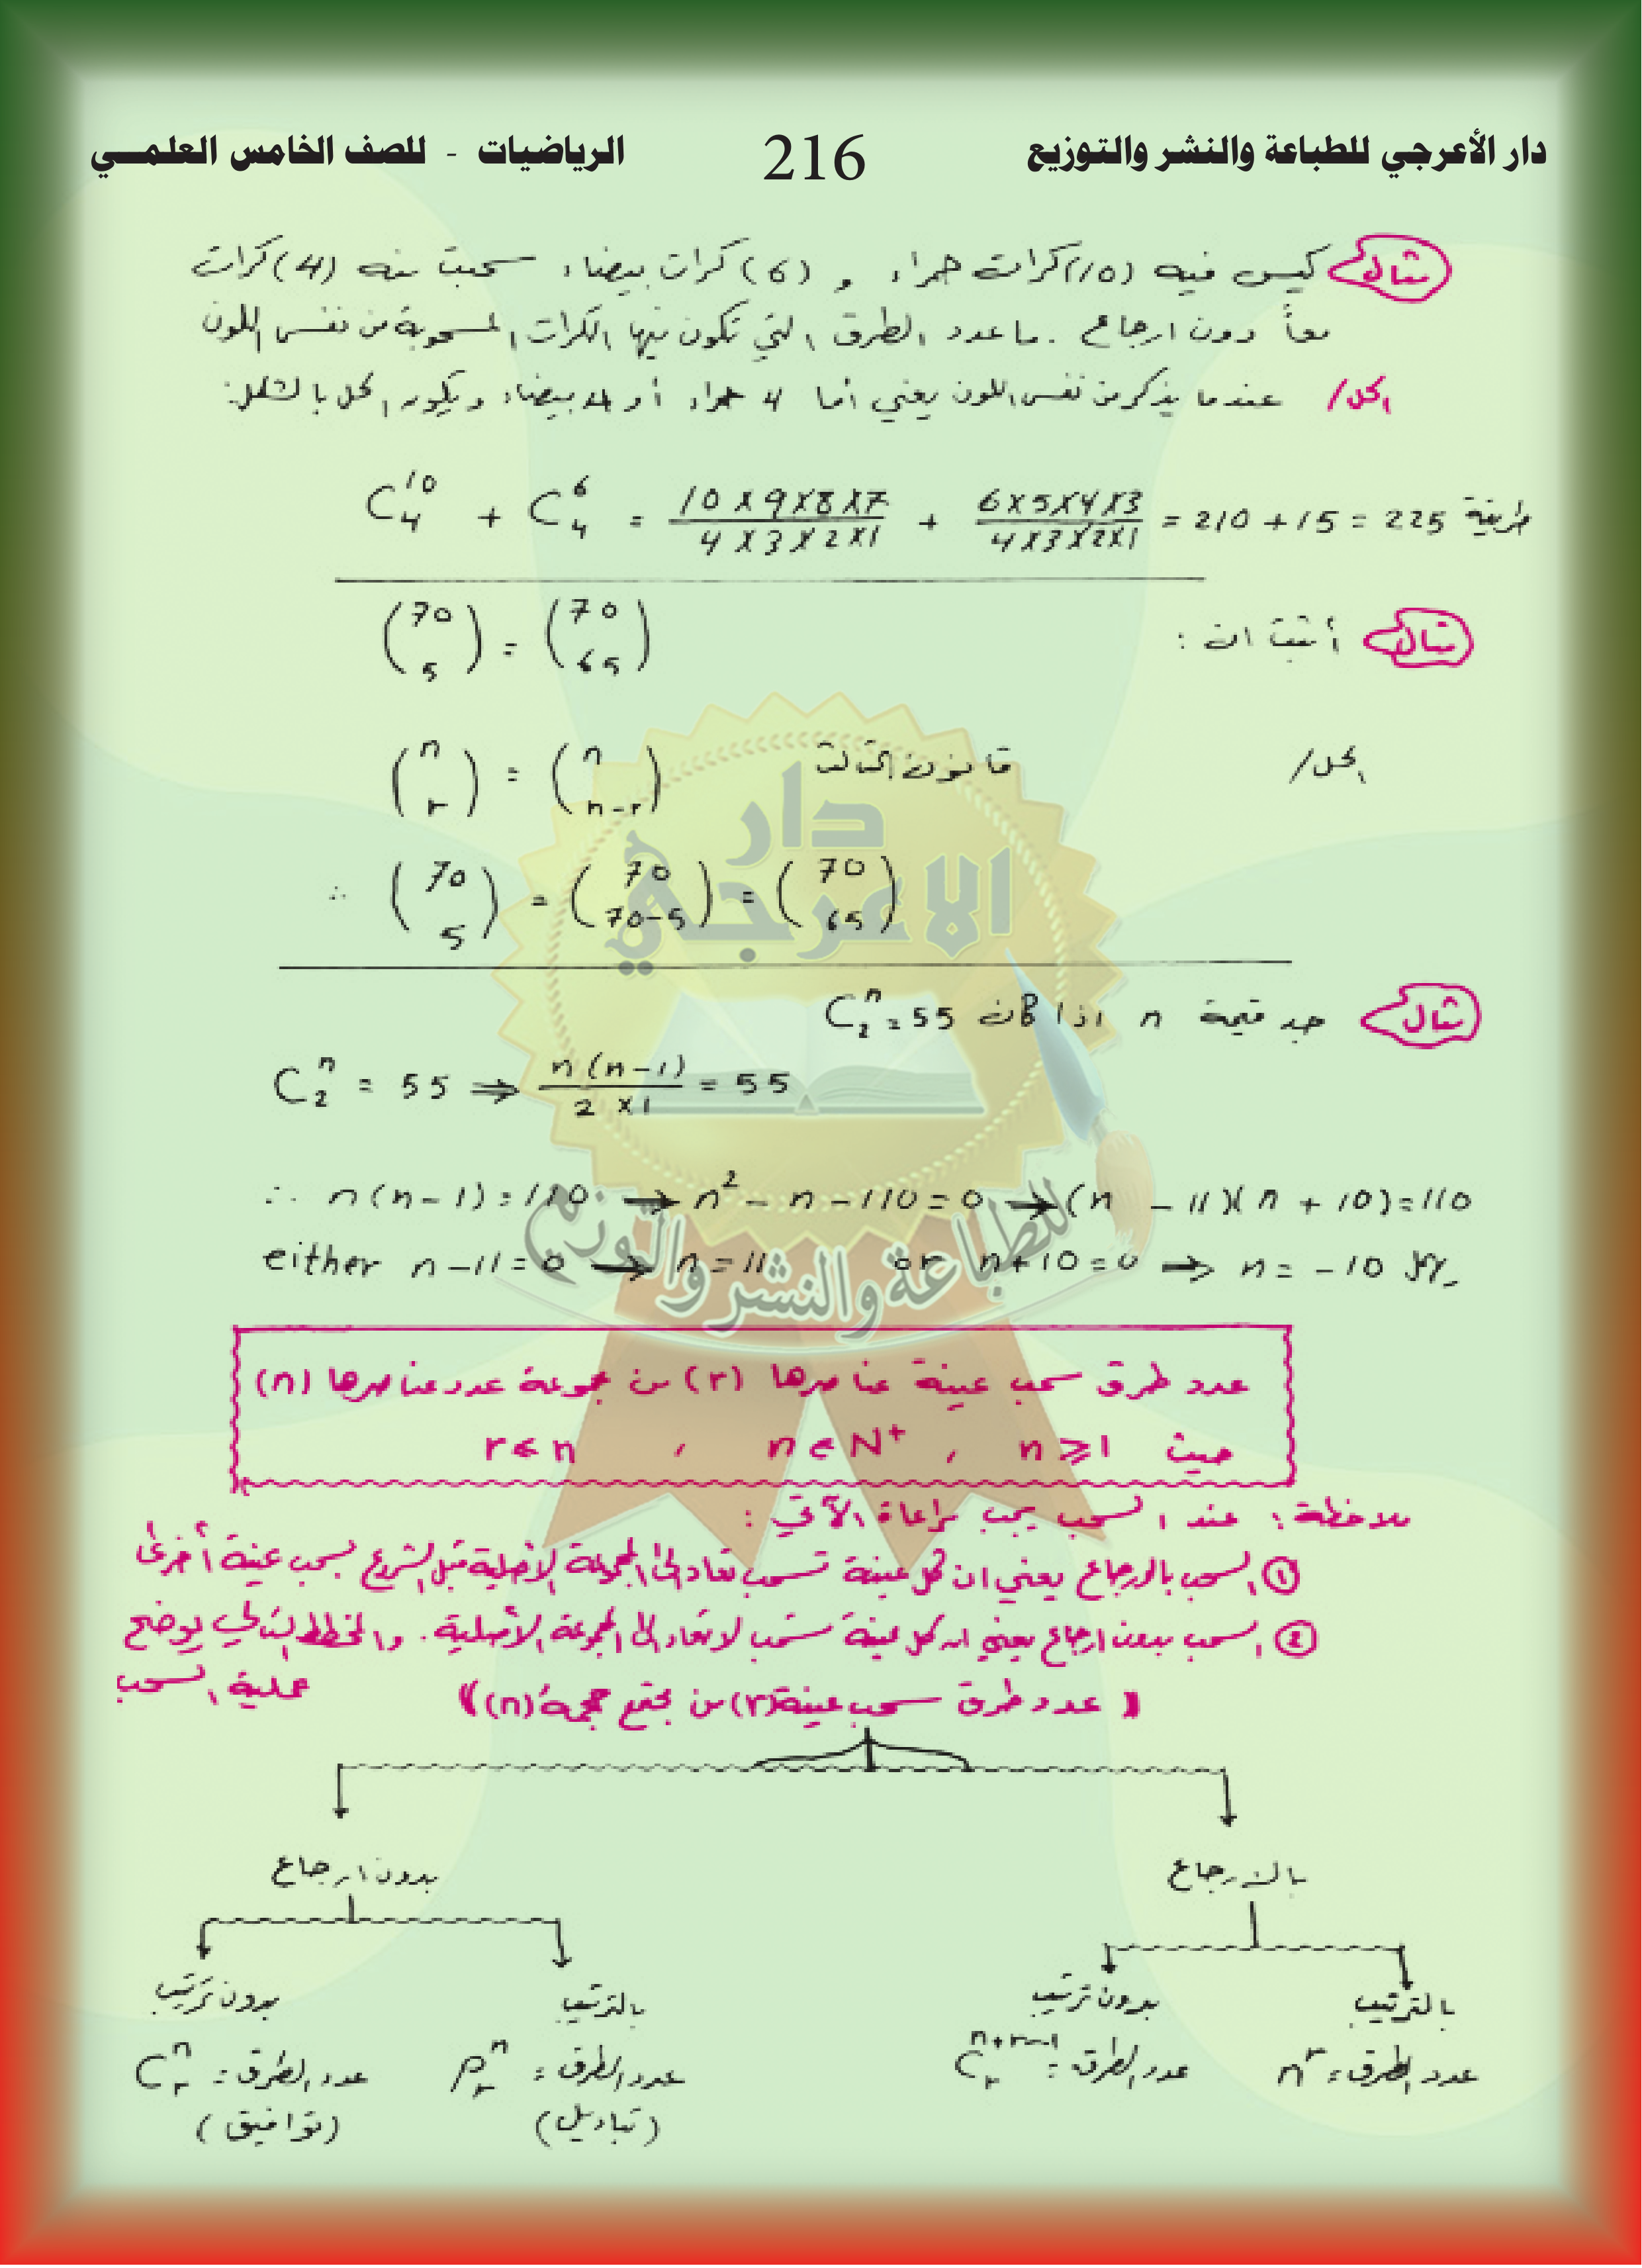 دار الأعرجي للطباعة والنشر والتوزيع 216 الرياضيات - للصف الخامس العلمي
مثال كيس فيه (10) كرات حمراء و (6) كرات بيضاء سحبت منه (4) كرات
معاً دون ارجاع . ما عدد الطرق التي تكون فيها الكرات المسحوبة من نفس اللون
الحل / عندما يذكر من نفس اللون يعني أما 4 حمراء أو 4 بيضاء ويكون الحل بالشكل:
C₄¹⁰ + C₄⁶ = (10×9×8×7)/(4×3×2×1) + (6×5×4×3)/(4×3×2×1) = 210 + 15 = 225 طريقة
مثال أثبت ان : (70 5) = (70 65)
الحل / قانون الثالث (n r) = (n n-r)
∴ (70 5) = (70 70-5) = (70 65)
مثال جد قيمة n اذا كان C₂ⁿ = 55
C₂ⁿ = 55 ⇒ n(n-1)/(2×1) = 55
∴ n(n-1) = 110 → n² - n - 110 = 0 → (n - 11)(n + 10) = 110
either n-11 = 0 → n = 11 or n+10 = 0 → n = -10
عدد طرق سحب عينة عناصرها (r) من مجموعة عدد عناصرها (n)
حيث n ⩾ 1 , n ∈ N⁺ , r < n
ملاحظة : عند السحب يجب مراعاة الآتي :
① السحب بالارجاع يعني ان كل عينة تسحب تعاد الى المجموعة الأصلية قبل الشروع بسحب عينة أخرى
② السحب بدون ارجاع يعني ان كل عينة تسحب لا تعاد الى المجموعة الأصلية . والمخطط التالي يوضح
عملية السحب
(( عدد طرق سحب عينة (r) من مجتمع حجمه (n) ))
بالارجاع بدون ارجاع
بالترتيب بدون ترتيب بالترتيب بدون ترتيب
عدد الطرق = nʳ عدد الطرق = Cᵣⁿ⁺ʳ⁻¹ عدد الطرق = Pᵣⁿ عدد الطرق = Cᵣⁿ
(تباديل) (توافيق)
دار
الاعرجي
للطباعة والنشر والتوزيع